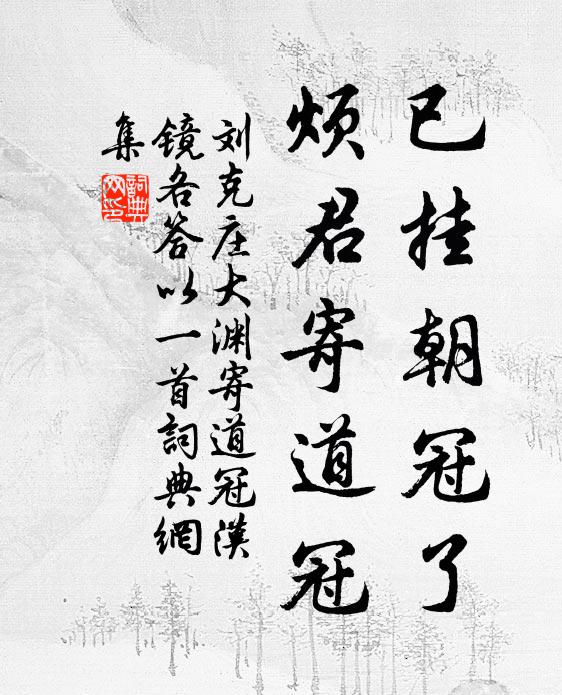 已挂朝冠了
烦君寄道冠
刘克庄大渊寄道冠汉
镜各答以一首詞典網
集
詞典網印